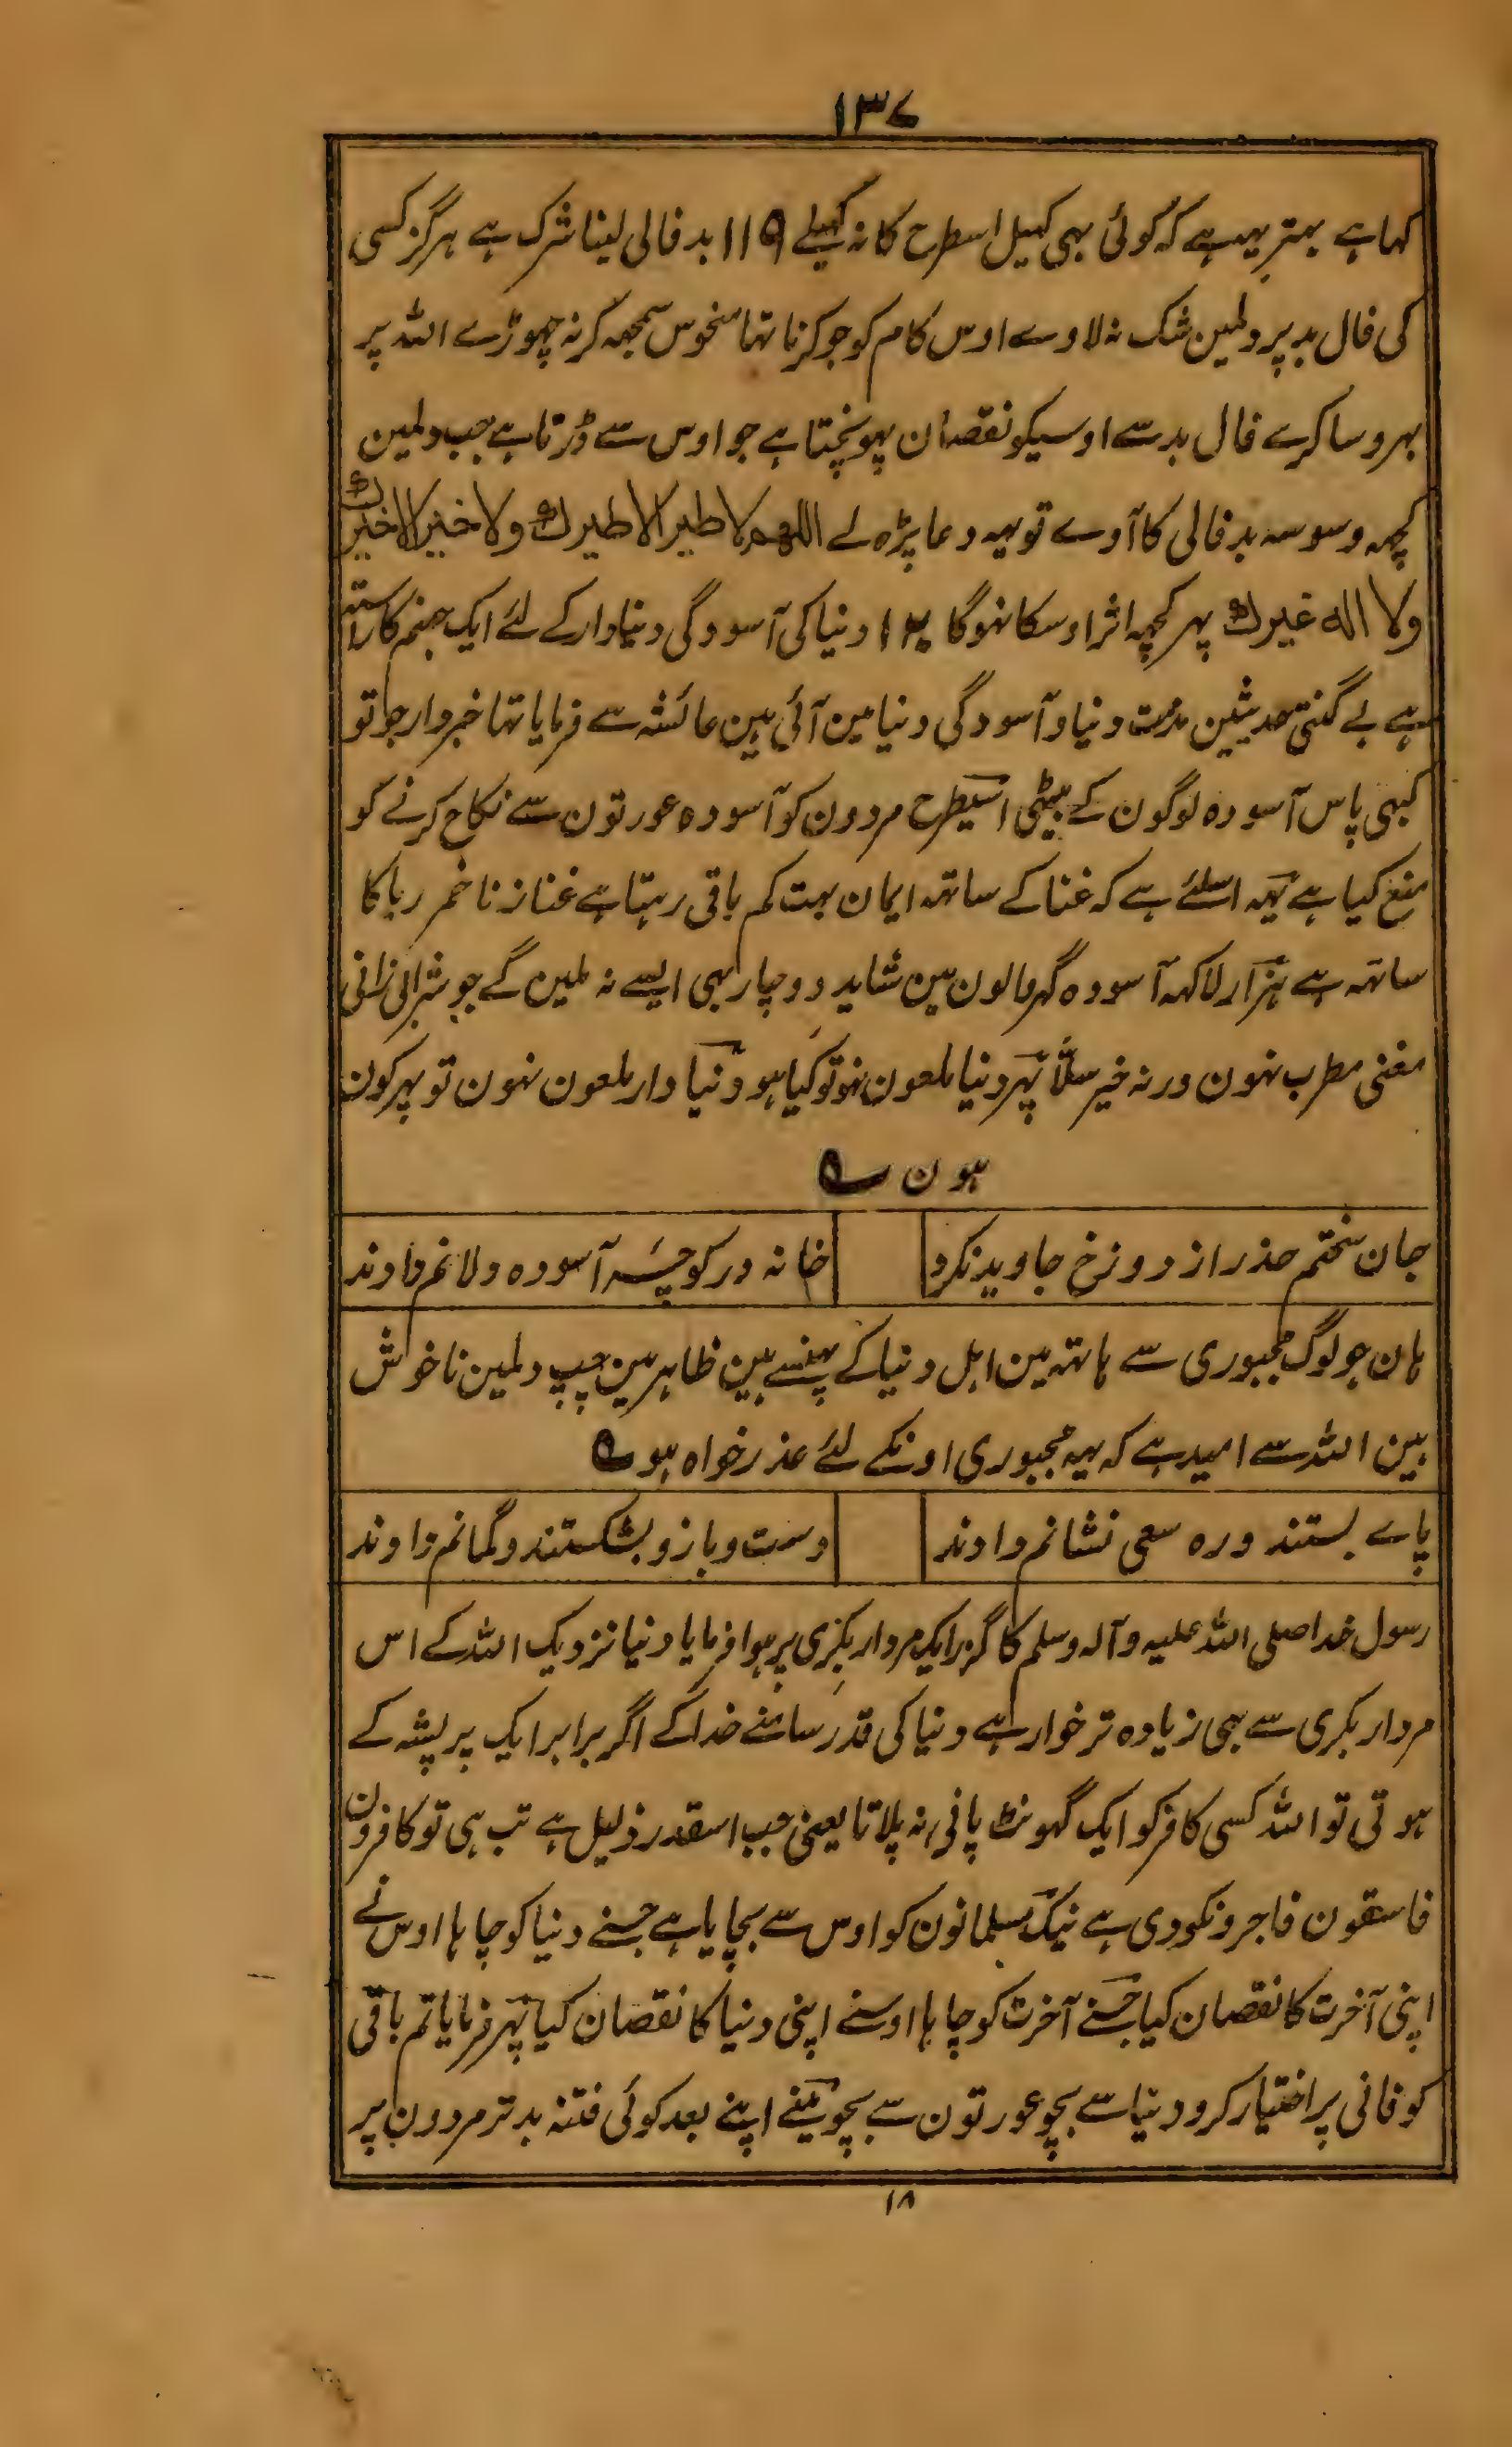 ۱۳۷
کہا ہے بہتر یہہ ہے کہ کوئی بہی کہیل اسطرح کا نہ کہیلے ۱۱۹ بد فالی لینا شرک ہے ہرگز کسی
کی فال بد پر دلمین شک نہ لاوے اوس کام کو جو کرنا تہا منحوس سمجہہ کر نہ چہوڑے اللہ پر
بہروسا کرے فال بد سے اوسیکو نقصان پہونچتا ہے جو اوس سے ڈرتا ہے جب دلمین
کچہہ وسوسہ بد فالی کا آوے تو یہہ دعا پڑہ لے اللهم لا طير الا طيرك ولا خير الا خيرك
ولا اله غيرك پہر کچہہ اثر اوسکا نہوگا ۱۲۰ دنیا کی آسودگی دنیادار کے لئے ایک جہنم کا راستہ
ہے بے گنتی حدیثین مذمت دنیا و آسودگی دنیا مین آئی ہین عائشہ سے فرمایا تہا خبردار جو تو
کبہی پاس آسودہ لوگون کے بیٹہی اسیطرح مردون کو آسودہ عورتون سے نکاح کرنے کو
منع کیا ہے یہہ اسلئے ہے کہ غنا کے ساتہہ ایمان بہت کم باقی رہتا ہے غنا زنا خمر ربا کا
ساتہہ ہے ہزار لاکہہ آسودہ گہر والون مین شاید دو چار بہی ایسے نہ ملین گے جو شرابی زانی
مغنی مطرب نہون ورنہ خیر سلّا پہر دنیا ملعون نہو تو کیا ہو دنیا دار ملعون نہون تو پہر کون
ہون ؎
جان سختم حذر از دوزخ جاوید نکرد
خانہ در کوچۂ آسودہ دلانم دادند
ہان جو لوگ مجبوری سے ہاتہہ مین اہل دنیا کے پہنسے ہین ظاہر مین چپ دلمین ناخوش
ہین اللہ سے امید ہے کہ یہہ مجبوری اونکے لئے عذر خواہ ہو ؎
پاے بستند و رہ سعی نشانم دادند
دست و بازو بشکستند و گمانم دادند
رسول خدا صلی اللہ علیہ وآلہ وسلم کا گزر ایک مردار بکری پر ہوا فرمایا دنیا نزدیک اللہ کے اس
مردار بکری سے بہی زیادہ تر خوار ہے دنیا کی قدر سامنے خدا کے اگر برابر ایک پر پشہ کے
ہوتی تو اللہ کسی کافر کو ایک گہونٹ پانی نہ پلاتا یعنی جب اسقدر ذلیل ہے تب ہی تو کافرون
فاسقون فاجرونکو دی ہے نیک مسلمانون کو اوس سے بچایا ہے جسنے دنیا کو چاہا اوس نے
اپنی آخرت کا نقصان کیا جسنے آخرت کو چاہا اوسنے اپنی دنیا کا نقصان کیا پہر فرمایا تم باقی
کو فانی پر اختیار کرو دنیا سے بچو عورتون سے بچو مینے اپنے بعد کوئی فتنہ بدتر مردون پر
۱۸